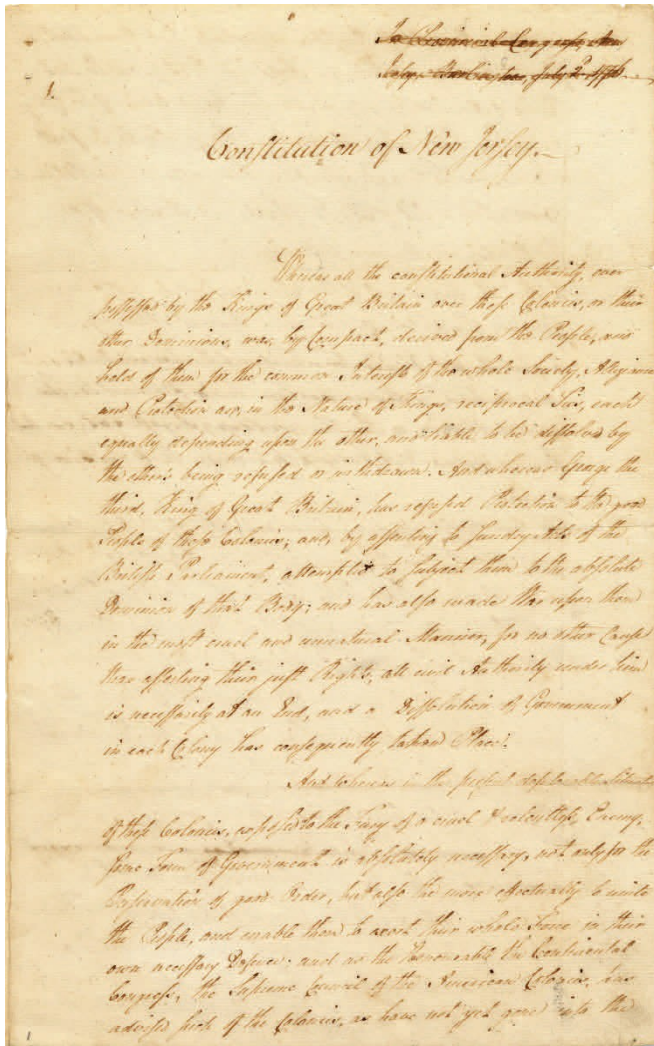 In Provincial Congress, New
Jersey, Burlington, July 2d. 1776.
1.
Constitution of New Jersey.
Whereas all the constitutional Authority, ever
possessed by the Kings of Great Britain over these Colonies, or their
other Dominions, was, by Compact, derived from the People, and
held of them for the common Interest of the whole Society, Allegiance
and Protection are, in the Nature of Things, reciprocal Ties, each
equally depending upon the other, and liable to be dissolved by
the others being refused or withdrawn. And whereas George the
third, King of Great Britain, has refused Protection to the good
People of these Colonies; and, by assenting to sundry Acts of the
British Parliament, attempted to subject them to the absolute
Dominion of that Body; and has also made War upon them
in the most cruel and unnatural Manner, for no other Cause
than asserting their just Rights, all civil Authority under him
is necessarily at an End, and a Dissolution of Government
in each Colony has consequently taken Place.
And whereas in the present deplorable Situation
of these Colonies, exposed to the Fury of a cruel & relentless Enemy,
some Form of Government is absolutely necessary, not only for the
Preservation of good Order, but also the more effectually to unite
the People, and enable them to exert their whole Force in their
own necessary Defence; and as the Honourable the Continental
Congress, the Supreme Council of the American Colonies, has
advised such of the Colonies, as have not yet gone into the
1